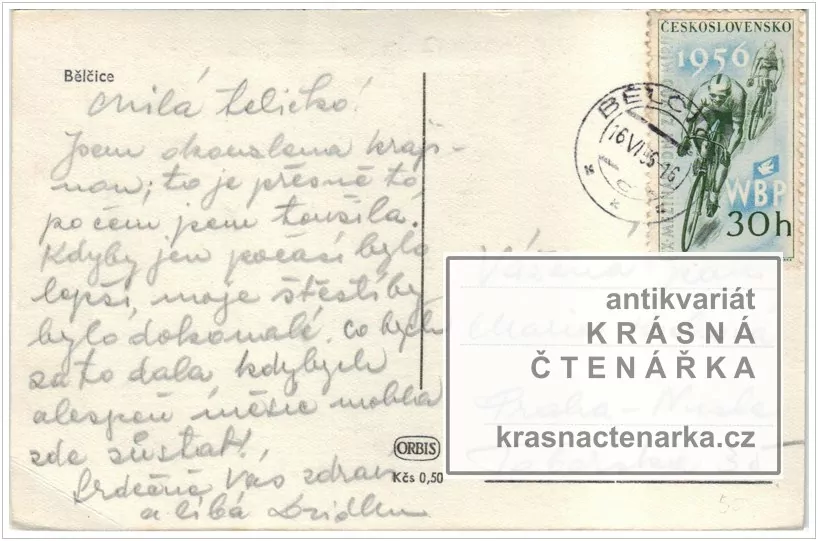 Bělčice
Milá teličko!
Jsem okouzlena kraji-
nou; to je přesně to
po čem jsem toužila.
Kdyby jen počasí bylo
lepší, moje štěstí by
bylo dokonalé. Co bych
za to dala kdybych
alespoň měsíc mohla
zde zůstat!
Srdečně Vás zdraví
a líbá
ORBIS
Kčs 0,50
ČESKOSLOVENSKO
1956
WBP
30h
BĚLČ
16.VI.56-16
Vážená paní
Marie
Praha - Nusle
antikvariát
KRÁSNÁ
ČTENÁŘKA
krasnactenarka.cz